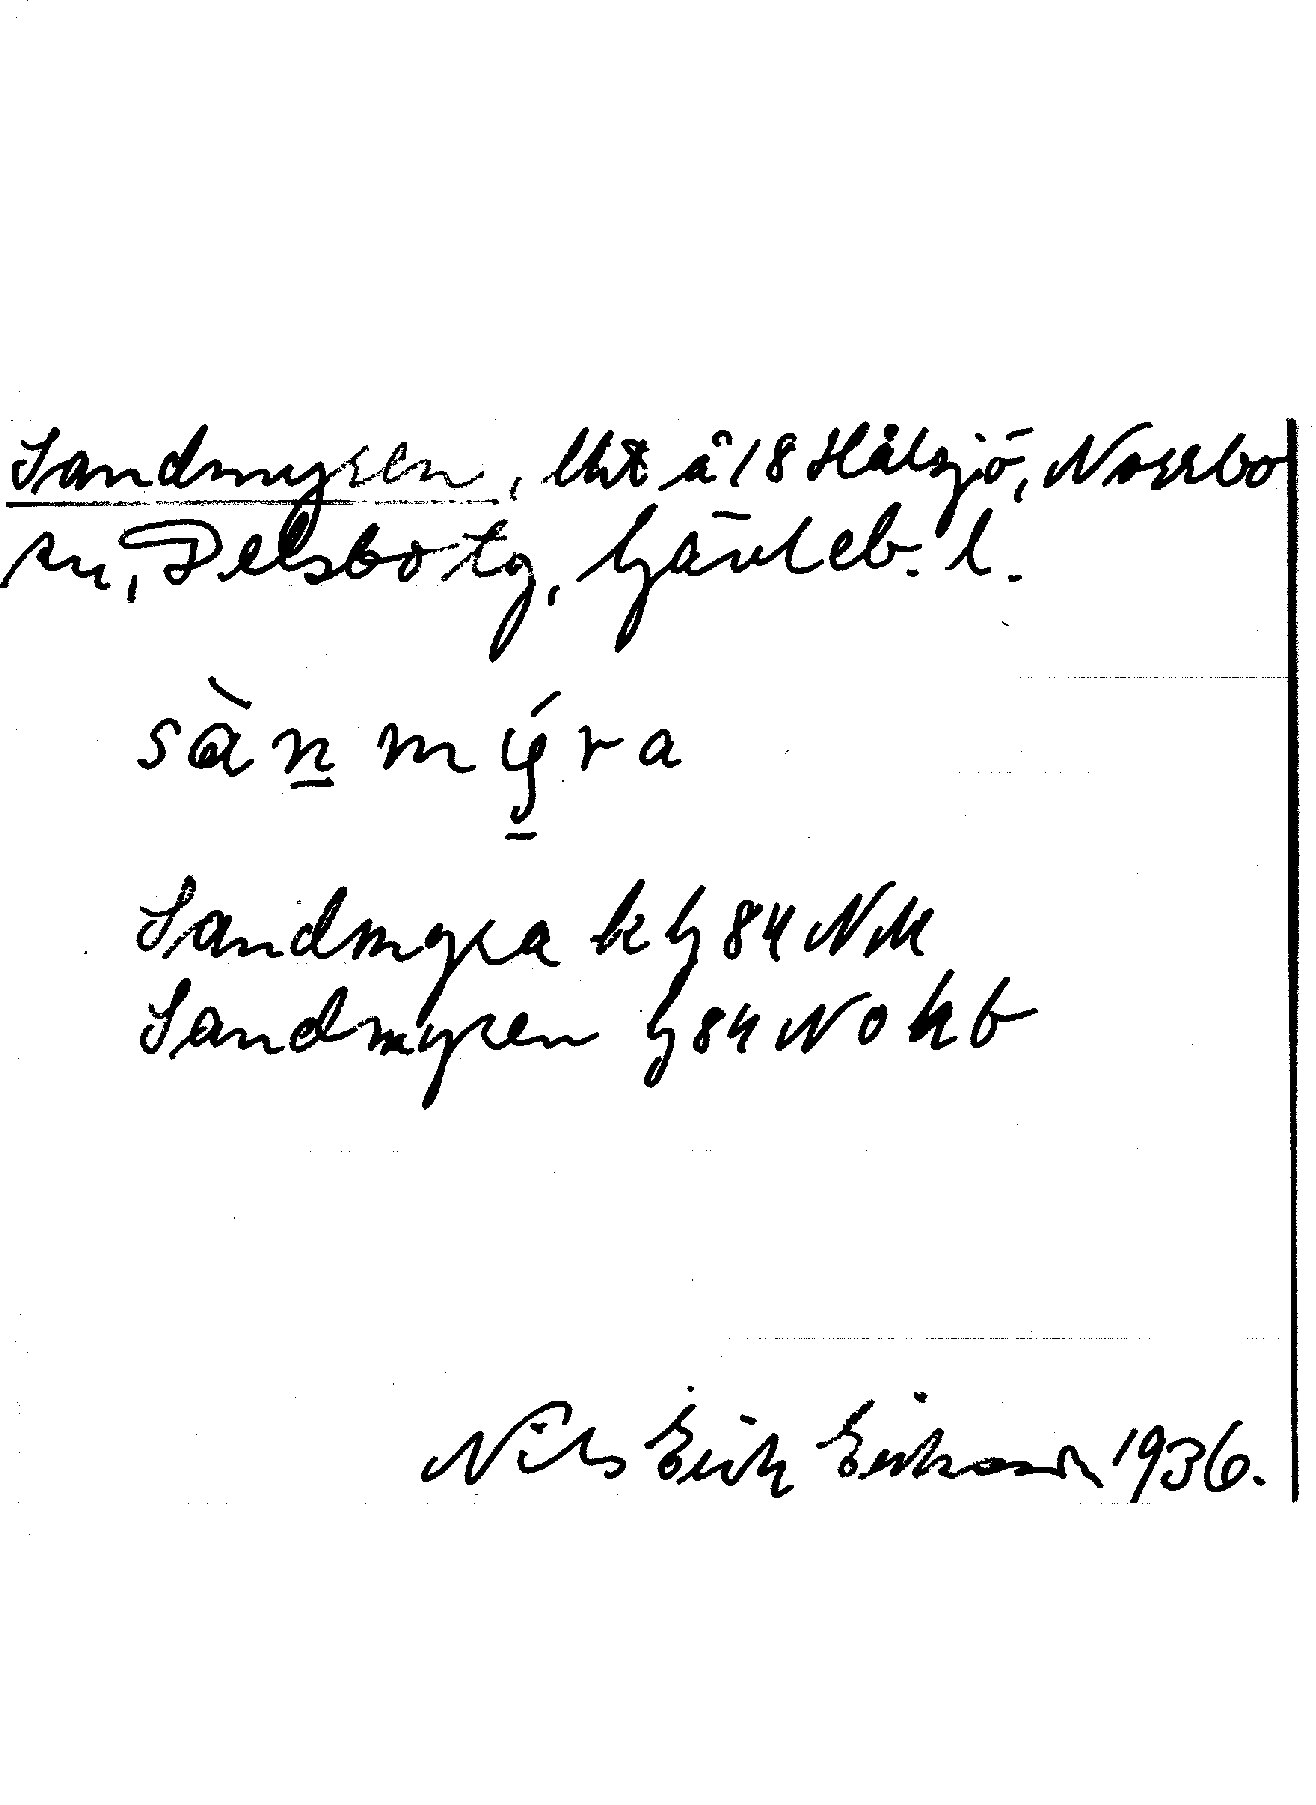 Sandmyren, lht å 18 Hålsjö, Norrbo
sn, Delsbo tg, Gävleb. l.
sàn̲mý̲ra
Sandmyra k G 84 NM
Sandmyren G 84 NO hb
Nils Erich Erikson 1936.